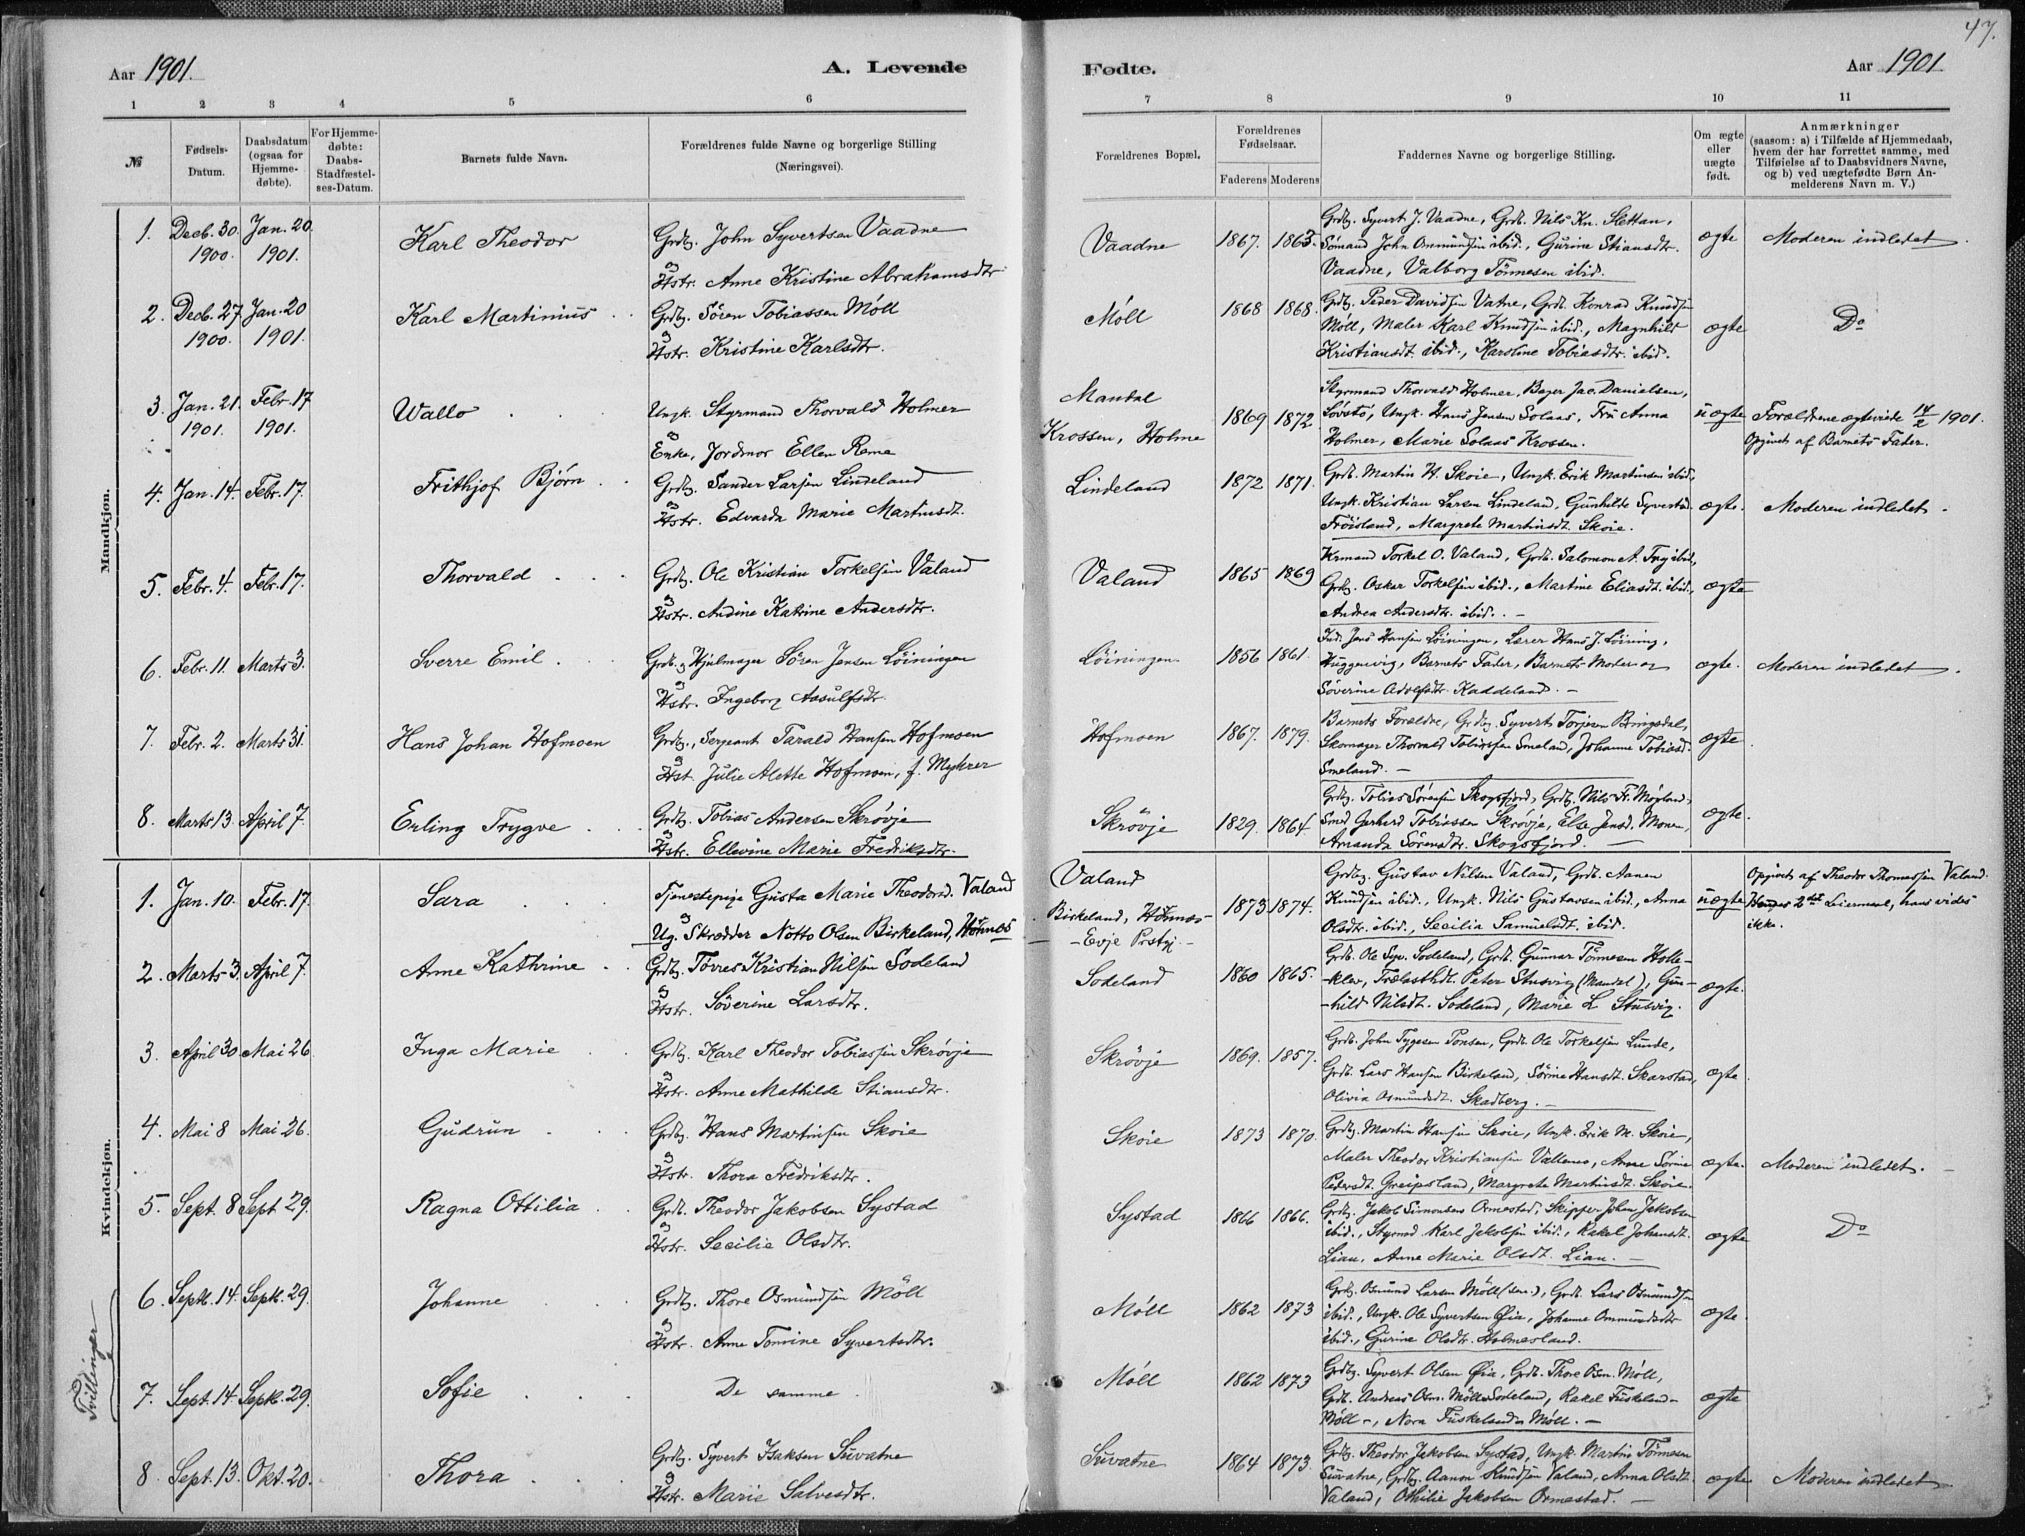 47.
Aar 1901.
A. Levende
Fødte.
Aar 1901
1 2 3 4 5 6 7 8 9 10 11
№
Fødsels-
Datum.
Daabsdatum
(ogsaa for
Hjemme-
døbte).
For Hjemme-
døbte:
Daabs-
Stadfæstel-
ses-Datum.
Barnets fulde Navn.
Forældrenes fulde Navne og borgerlige Stilling
(Næringsvei).
Forældrenes Bopæl.
Forældrenes
Fødselsaar.
Faderens Moderens
Faddernes Navne og borgerlige Stilling.
Om ægte
eller
uægte
født.
Anmærkninger
(saasom: a) i Tilfælde af Hjemmedaab,
hvem der har forrettet samme, med
Tilføielse af to Daabsvidners Navne,
og b) ved uægtefødte Børn An-
melderens Navn m. V.)
Mandkjøn.
1. Decb. 30. 1900. Jan. 20. 1901. Karl Theodor
Grdbg. John Syvertsen Vaadne
og
Hstr. Anne Kristine Abrahamsdtr.
Vaadne 1867. 1863.
Grdbg. Syvert J. Vaadne, Grdb. Nils Kn. Slettan,
Sömand John Ommundsen ibid., Gurine Stiansdtr.
Vaadne, Valborg Tönnesen ibid.
ægte Moderen indledet.
2. Decb. 27. 1900. Jan. 20 1901. Karl Martinius
Grdbg. Sören Tobiassen Möll
og
Hstr. Kristine Karlsdtr.
Möll 1868 1868.
Grdbg. Peder Davidsen Vatne, Grdb. Konrad Knudsen
Möll, Maler Karl Knudsen ibid., Magnhild
Kristiansdt. ibid., Karoline Tobiasdtr. ibid.
ægte Do
3. Jan. 21. 1901. Febr. 17 1901. Wallo
Ungk. Styrmand Thorvald Holmer
og
Enke, Jordmor Ellen Reme
Mandal
Krossen, Holme
1869 1872
Styrmand Thorvald Holmer, Bager Jac. Danielsen,
Ungk. Hans Jensen Solaas, Fru Anna
Holmer, Marie Solaas Krossen.
uægte Forældrene ægteviede 14/2 1901.
Opgivet af Barnets Fader.
4. Jan. 14. Febr. 17. Frithjof Bjørn
Grdbg. Sander Larsen Lindeland
og
Hstr. Edvarda Marie Martinsdt.
Lindeland 1872 1871.
Grdb. Martin H. Skoie, Ungk. Erik Martinsen ibid.,
Ungk. Kristian Larsen Lindeland, Gunhilde Syvertsd.
Fröisland, Margrete Martinsdt. Skoie.
ægte. Moderen indledet.
5. Febr. 4. Febr. 17. Thorvald
Grdbg. Ole Kristian Torkelsen Valand
og
Hstr. Andine Katrine Andersdtr.
Valand 1865 1869
Krmand Torkel O. Valand, Grdb. Salomon A. ibid.,
Grdbg. Oskar Torkelsen ibid., Martine Eliasdt. ibid.,
Andrea Andersdtr. ibid.
ægte
6. Febr. 11. Marts 3. Sverre Emil
Grdb. og Hjulmager Sören Jensen Löiningen
og
Hstr. Ingeborg Aasulfsdtr
Löiningen 1856 1861.
Ind. Jens Hansen Löiningen, Lærer Hans J. Löining,
Huggenvig, Barnets Fader, Barnets Moder og
Söverine Adolfsdtr. Kaddeland.
ægte. Moderen indledet.
7. Febr. 2. Marts 31. Hans Johan Hofmoen
Grdbg., Sergeant Tarald Hansen Hofmoen
og
Hst. Julie Alette Hofmoen, f. Myhrer
Hofmoen 1867. 1879.
Barnets Forældre, Grdbg. Syvert Torjesen Bringsdal,
Skomager Thorvald Tobiassen Smeland, Johanne Tobiasd.
Smeland.
ægte
8. Marts 13. April 7. Erling Trygve
Grdbg. Tobias Andersen Skrövje
og
Hstr. Ellevine Marie Fredriksdtr.
Skrövje 1829. 1864
Grdbg. Tobias Sörensen Skogsfjord, Grdbg. Nils Fr. Møgland,
Smed Gerhard Tobiassen Skrövje, Else Jensd. Monen,
Amanda Sörensdtr. Skogsfjord.
ægte.
Kvindekjøn.
1. Jan. 10. Febr. 17. Sara
Tjenestepige Gusta Marie Theodorsd. Valand
og
Ug. Skrædder Notto Olsen Birkeland, Hornnes
Valand
Birkeland, Hornnes
Evje Prstgj.
1873 1874.
Grdbg. Gustav Nilsen Valand, Grdb. Aanen
Knudsen ibid., Ungk. Nils Gustavsen ibid., Anna
Olsdtr. ibid., Secilia Samuelsdt. ibid.
uægte
Opgivet af Theodor Thomassen Valand.
Hendes 2det Leiermaal, hans vides
ikke.
2. Marts 3. April 7. Anne Kathrine
Grdbg. Torres Kristian Nilsen Sodeland
og
Hstr. Söverine Larsdtr.
Sodeland 1860 1865.
Grdb. Ole Syv. Sodeland, Grdb. Gunnar Tönnesen Holte-
klev, Trælasthdt. Peter Stusvig (Mandal), Gun-
hild Nilsdt. Sodeland, Marie L. Stusvig.
ægte.
3. April 30 Mai 26 Inga Marie
Grdbg. Karl Theodor Tobiassen Skrövje
og
Hstr. Anne Mathilde Stiansdtr.
Skrövje 1869. 1857.
Grdb. John Tygesen Ponsen, Grdb. Ole Torkelsen Lunde,
Grdb. Lars Hansen Birkeland, Sörine Hansdt. Skarstad,
Olivia Osmundsdt. Skadberg.
ægte
4. Mai 8 Mai 26. Gudrun
Grdbg. Hans Martinsen Skoie
og
Hstr. Thora Fredriksdtr.
Skoie 1873 1870.
Grdbg. Martin Hansen Skoie, Ungk. Erik M. Skoie,
Maler Theodor Kristiansen Vallemo, Anne Sörine
Pedersdt. Greipsland, Margrete Martinsdt. Skoie.
ægte. Moderen indledet.
5. Sept. 8 Sept 29. Ragna Ottilia
Grdb. Theodor Jakobsen Systad
og
Hstr. Secilie Olsdtr.
Systad 1866 1866.
Grdbg. Jakob Simonsen Ormestad, Skipper Johan Jakobsen
ibid., Styrmd Karl Jakobsen ibid., Rakel Johansdt.
Lian, Anne Marie Olsdt. Lian.
ægte Do
Tvillinger
6. Septb. 14. Septb. 29. Johanne
Grdbg. Thore Osmundsen Möll
og
Hstr. Anne Tomine Syvertsdtr.
Möll 1862 1873
Grdbg. Osmund Larsen Möll (sen.), Grdb. Lars Osmundsen
ibid., Ungk. Ole Syvertsen Øie, Johanne Ommundsdtr
ibid., Gurine Olsdtr. Holmesland.
ægte.
7. Sept. 14 Septb. 29. Sofie
De samme
Möll 1862 1873
Grdbg. Syvert Olsen Øie, Grdb. Thore Osm. Möll,
Grdb. Andreas Osm. Möll Sodeland, Rakel Fuskeland-
Möll-, Nora Fuskeland Möll.
ægte
8. Sept. 13. Okt. 20. Thora
Grdbg. Syvert Isaksen Suvatne
og
Hstr. Marie Salvesdtr.
Suvatne 1864 1873.
Grdbg. Theodor Jakobsen Systad, Ungk. Martin Tönnesen
Suvatne, Grdbg. Aanon Knudsen Valand, Anna Olsdt.
Valand, Othilie Jakobsen Ormestad.
ægte Moderen indledet